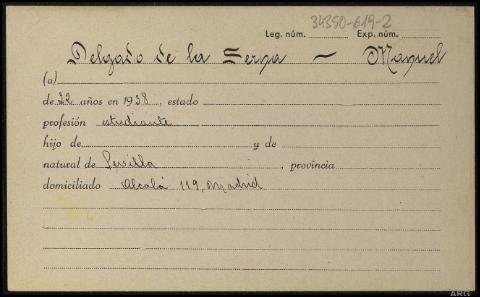 34350-619-2
Leg. núm. Exp. núm.
Delgado de la Serna — Manuel
(a)
de 22 años en 1938, estado
profesión estudiante
hijo de y de
natural de Sevilla, provincia
domiciliado Alcalá 119, Madrid
ARG